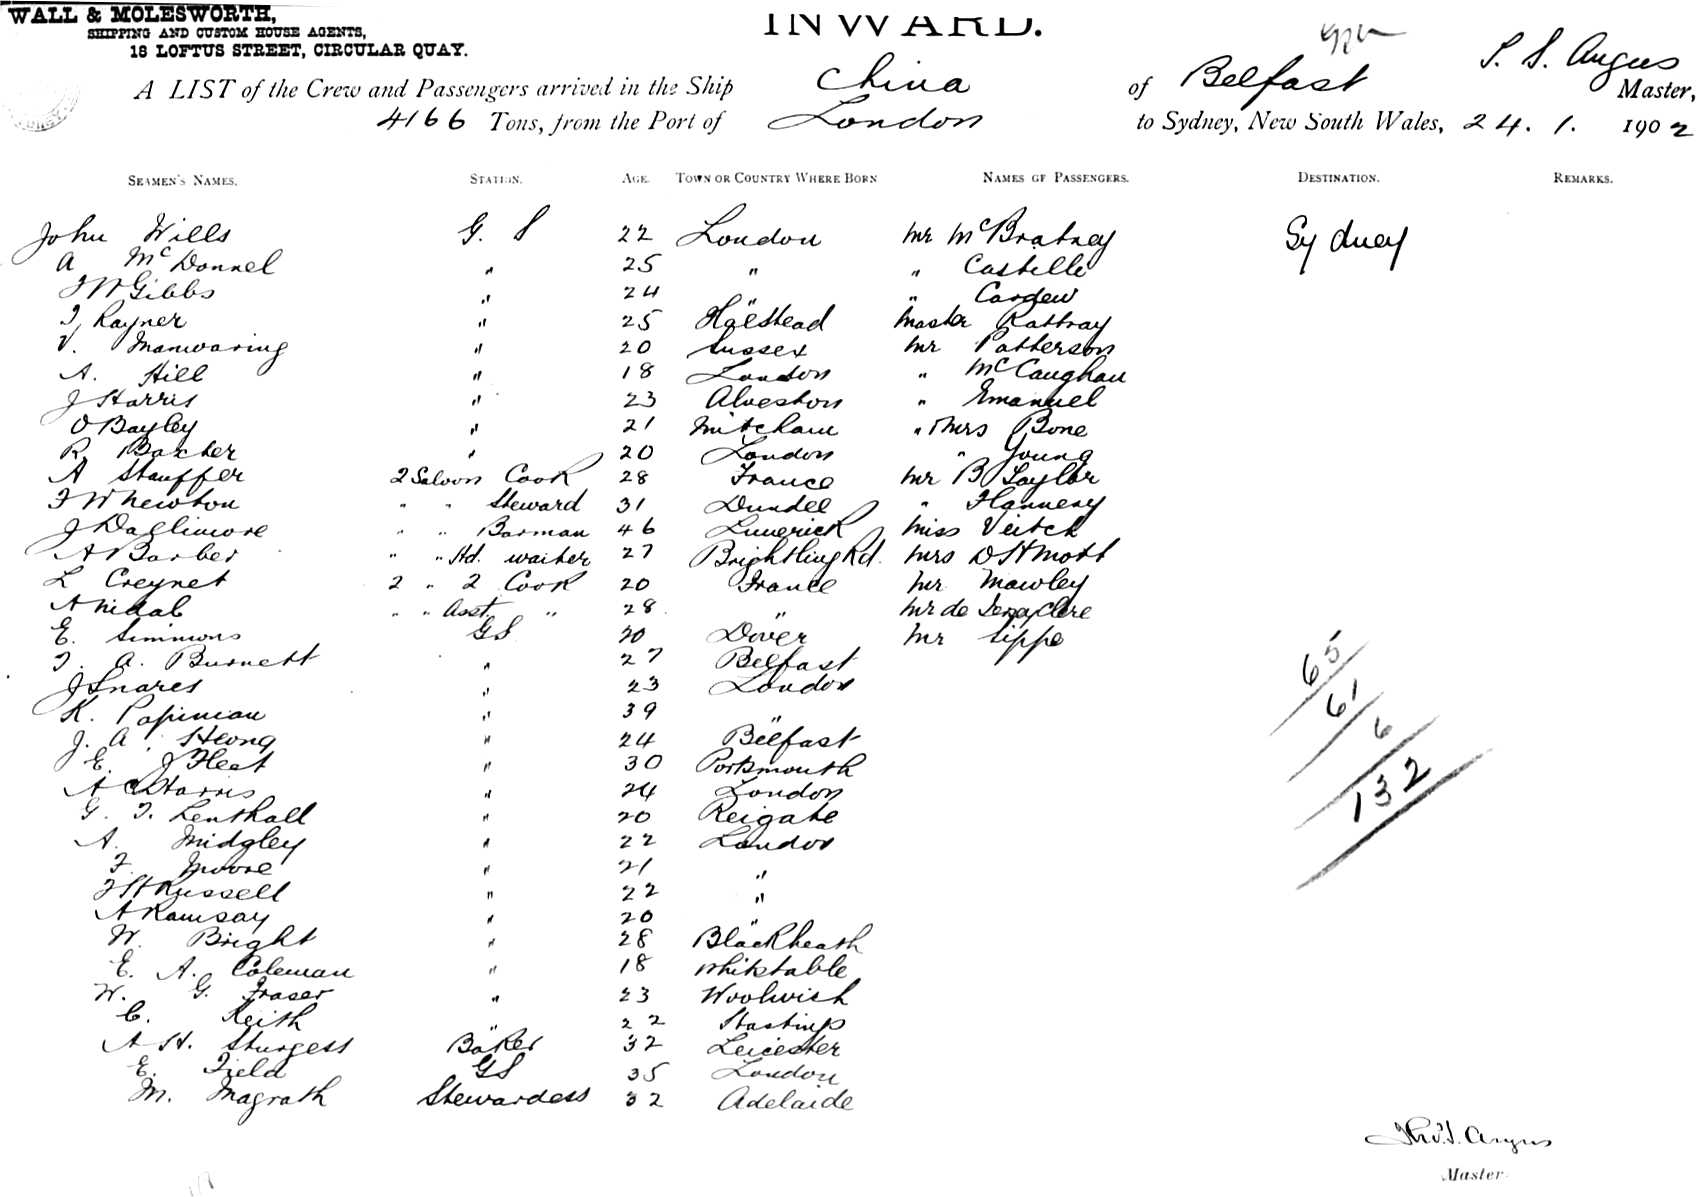 WALL & MOLESWORTH,
SHIPPING AND CUSTOM HOUSE AGENTS,
18 LOFTUS STREET, CIRCULAR QUAY.
INWARD.
A LIST of the Crew and Passengers arrived in the Ship China of Belfast S. S. Angus Master,
4166 Tons, from the Port of London to Sydney, New South Wales, 24. 1. 1902
SEAMEN'S NAMES. STATION. AGE. TOWN OR COUNTRY WHERE BORN NAMES OF PASSENGERS. DESTINATION. REMARKS.
John Wills G. S 22 London Mr McBratney Sydney
A McDonnel " 25 " " Castelle
J W Gibbs " 24 " " Cardew
T, Rayner " 25 Halstead Master Rattray
V. Manwaring " 20 Sussex Mr Patterson
A. Hill " 18 London " McCaughan
J Harris " 23 Alveston " Emanuel
O Bayley " 21 Mitcham " Mrs Bone
R. Barber " 20 London " Young
A Stauffer 2 Saloon Cook 28 France Mr B Taylor
F W Newton " " Steward 31 Dundee " Flannery
J Daglimore " " Barman 46 Limerick Miss Veitch
A Barber " " Hd. waiter 27 Brightling Rd. Mrs D H Mott
L Creynet 2 " 2 Cook 20 France Mr Mawley
A Nidal " " Asst. " 28 " Mr de
E. Simmons GS 20 Dover Mr Sippe
T. A. Burnett " 27 Belfast
J Snares " 23 London
K. Papinian " 39 "
J. A. Heong " 24 Belfast
E. J Fleet " 30 Portsmouth
A C Harris " 24 London
G. T. Lenthall " 20 Reigate
A. Midgley " 22 London
F. Moore " 21 "
J H Russell " 22 "
A Ramsay " 20 "
W. Bright " 28 Blackheath
E. A. Coleman " 18 Whitstable
W. G. Fraser " 23 Woolwich
C. Keith " 22 Hastings
A H. Sturgess Baker 32 Leicester
E. Field GS 35 London
M. Magrath Stewardess 32 Adelaide
65
61
6
132
Angus
Master.